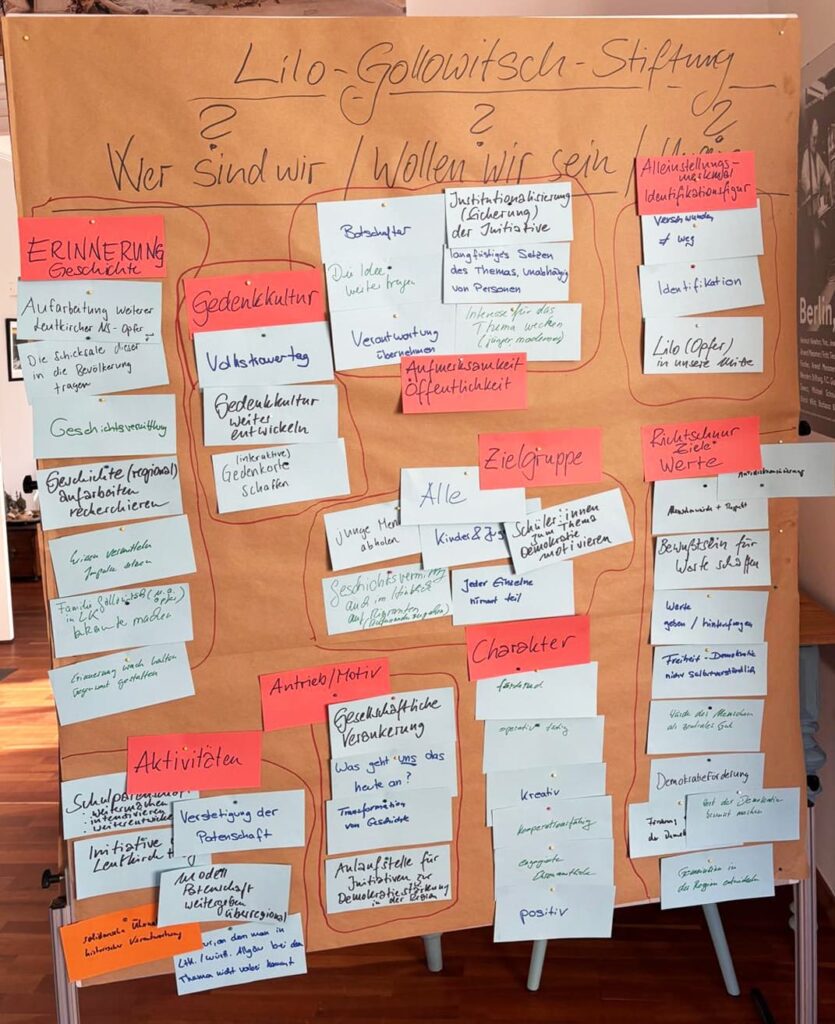 Lilo-Gollowitsch-Stiftung
? ? ?
Wer sind wir / Wollen wir sein /
Alleinstellungs-
merkmal
Identifikationsfigur
Verschwunden
≠ weg
Identifikation
Lilo (Opfer)
in unsere Mitte
Berlin,
ERINNERUNG
Geschichte
Aufarbeitung weiterer
Leutkircher NS-Opfer
Die Schicksale dieser
in die Bevölkerung
tragen
Geschichtsvermittlung
Geschichte (regional)
aufarbeiten
recherchieren
Wissen vermitteln
Impulse setzen
Familie Gollowitsch (u.a.
Opfer)
in LK
bekannt machen
Erinnerung wach halten
Gegenwart gestalten
Gedenkkultur
Volkstrauertag
Gedenkkultur
weiter
entwickeln
(interaktive)
Gedenkorte
schaffen
Botschafter
Die Idee
weiter tragen
Verantwortung
übernehmen
Institutionalisierung
(Sicherung)
der Initiative
langfristiges Setzen
des Themas, unabhängig
von Personen
Interesse für das
Thema wecken
Aufmerksamkeit
Öffentlichkeit
Zielgruppe
Alle
junge
abholen
Kinder &
Schüler:innen
zum Thema
Demokratie
motivieren
auch im
Jeder Einzelne
nimmt teil
Richtschnur
Ziele
Werte
Antidiskriminierung
Menschenwürde + Respekt
Bewußtsein für
Werte schaffen
Werte
geben / hinterfragen
Freiheit - Demokratie
nicht selbstverständlich
Würde des Menschen
als zentrales Gut
Demokratieförderung
der Demokratie
Generation in
der Region
Charakter
fördernd
operativ tätig
Kreativ
kooperationsfähig
engagierte
positiv
Antrieb/Motiv
Gesellschaftliche
Verankerung
Was geht uns das
heute an?
Transformation
von Geschichte
Anlaufstelle für
Initiativen zur
Demokratiestärkung
in der Region
Aktivitäten
weitermachen
intensivieren
Verstetigung der
Patenschaft
Initiative
Leutkirch
Modell
Patenschaft
weitergeben
überregional
historischer Verantwortung
an dem man in
Ltk. / württ. Allgäu bei dem
Thema nicht vorbei kommt